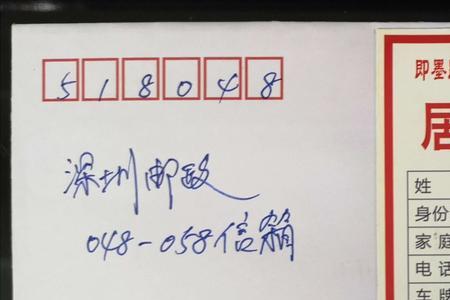 518048
深圳邮政
048-058信箱
即墨
居
姓
身份
家庭
电话
车牌